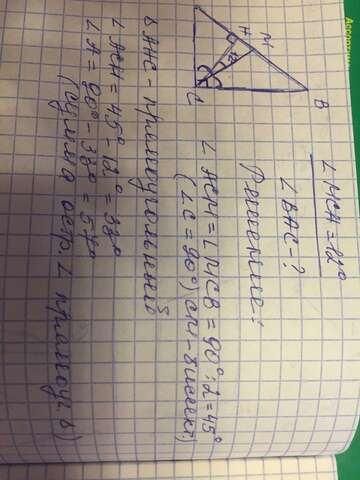 H M
C
B
∠MCH = 12°
∠BAC - ?
Решение:
∠ACM = ∠MCB = 90° : 2 = 45°
(∠C = 90°) CM - биссект)
△AHC - прямоугольный
∠ACH = 45° - 12° = 33°
∠A = 90° - 33° = 57°
(сумма остр. ∠ прямоуг. △)